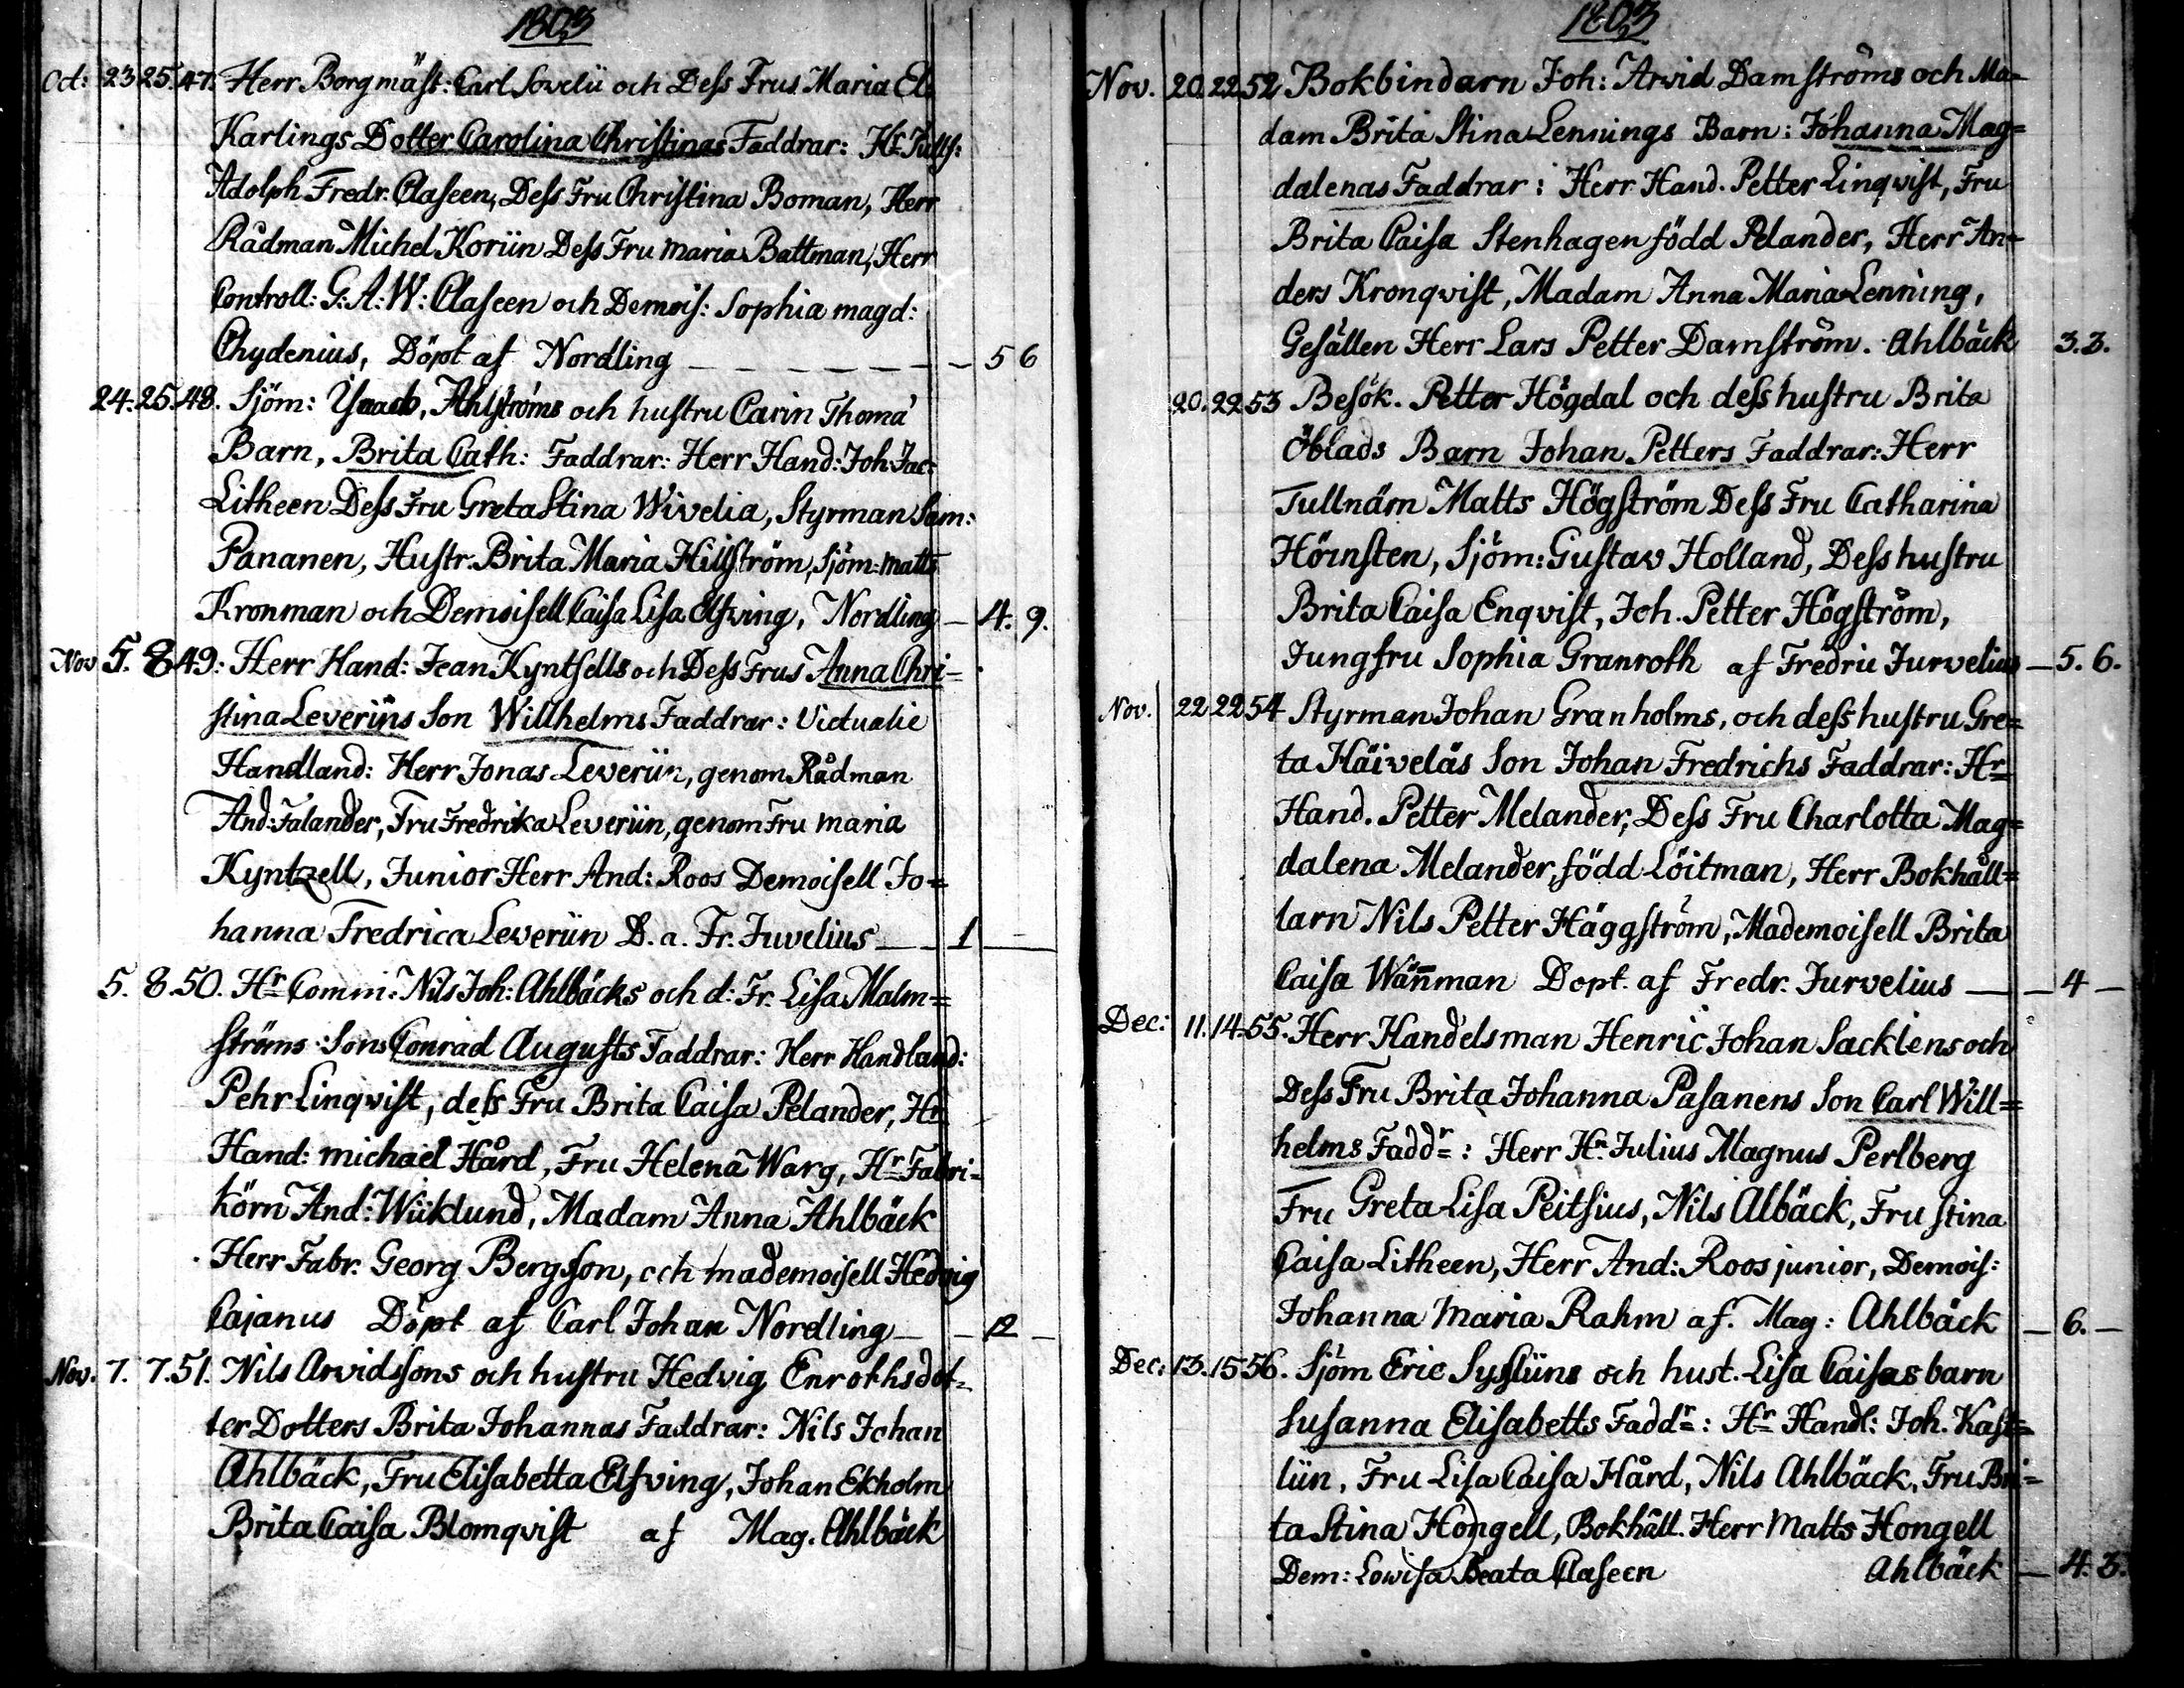 1803
Oct: 23 25. 47. Herr Borgmäst: Carl Sovelii och Dess Frus Maria El.
Karlings Dotter Carolina Christinas Faddrar: Hr Tullf:
Adolph Fredr. Claseen, Dess Fru Christina Boman, Herr
Rådman Michel Koriin Dess Fru Maria Battman, Herr
Controll: G: A: W: Claseen och Demois: Sophia Magd:
Chydenius, Döpt af Nordling — 5 6
24. 25. 48. Sjöm: Ahlströms och hustru Carin Thoma
Barn, Brita Cath: Faddrar: Herr Hand: Joh: Jac:
Litheen Dess Fru Greta Stina Wivelia, Styrman Sam:
Pananen, Hustr. Brita Maria Hillström, Sjöm: Matts
Kronman och Demoisell Caisa Lisa Elfving, Nordling — 4. 9.
Nov 5. 8 49: Herr Hand: Jean Kyntsells och Dess Frus Anna Chri=
stina Leveriins Son Willhelms Faddrar: Victualie
Handland: Herr Jonas Leveriin, genom Rådman
And: Falander, Fru Fredrika Leveriin, genom Fru Maria
Kyntzell, Junior Herr And: Roos Demoisell Jo=
hanna Fredrica Leveriin D. a. Fr. Juvelius — 1 —
5. 8. 50. Hr Comm: Nils Joh: Ahlbäcks och d: Fr. Lisa Malm=
ströms Sons Conrad Augusts Faddrar: Herr Handland:
Pehr Linqvist, dess Fru Brita Caisa Pelander, Hr
Hand: Michael Hård, Fru Helena Warg, Hr Fabri=
körn And: Wiiklund, Madam Anna Ahlbäck
Herr Fabr. Georg Bergsson, och Mademoisell Hedvig
Cajanus Döpt af Carl Johan Nordling — 12 —
Nov. 7. 7. 51. Nils Arvidssons och hustru Hedvig Enrothsdot=
ter Dotters Brita Johannas Faddrar: Nils Johan
Ahlbäck, Fru Elisabetta Elfving, Johan Ekholm
Brita Caisa Blomqvist af Mag. Ahlbäck
1803
Nov. 20. 22 52 Bokbindarn Joh: Arvid Damströms och Ma=
dam Brita Stina Lennings Barn: Johanna Mag=
dalenas Faddrar: Herr Hand. Petter Linqvist, Fru
Brita Caisa Stenhagen född Pelander, Herr An=
ders Kronqvist, Madam Anna Maria Lenning,
Gesällen Herr Lars Petter Damström. Ahlbäck 3. 3.
20. 22 53 Besök. Petter Högdal och dess hustru Brita
Öblads Barn Johan Petters Faddrar: Herr
Tullnärn Matts Högström Dess Fru Catharina
Hörnsten, Sjöm: Gustav Holland, Dess hustru
Brita Caisa Enqvist, Joh. Petter Högström,
Jungfru Sophia Granroth af Fredric Jurvelius — 5. 6.
Nov. 22 22 54 Styrman Johan Granholms, och dess hustru Gre=
ta Häiveläs Son Johan Fredrichs Faddrar: Hr
Hand. Petter Melander, Dess Fru Charlotta Mag=
dalena Melander, född Löitman, Herr Bokhåll=
larn Nils Petter Häggström, Mademoisell Brita
Caisa Wännman Döpt. af Fredr. Jurvelius — 4 —
Dec: 11. 14. 55. Herr Handelsman Henric Johan Sacklens och
Dess Fru Brita Johanna Pasanens Son Carl Will=
helms Faddr: Herr Hr Julius Magnus Perlberg
Fru Greta Lisa Peitsius, Nils Albäck, Fru Stina
Caisa Litheen, Herr And: Roos junior, Demois:
Johanna Maria Rahm af. Mag: Ahlbäck — 6. —
Dec: 13. 15 56. Sjöm Eric Sysliins och hust. Lisa Caisas barn
Susanna Elisabetts Faddr: Hr Handl: Joh. Kast=
liin, Fru Lisa Caisa Hård, Nils Ahlbäck, Fru Bri=
ta Stina Hongell, Bokhåll. Herr Matts Hongell
Dem: Lowisa Beata Claseen Ahlbäck — 4. 3.